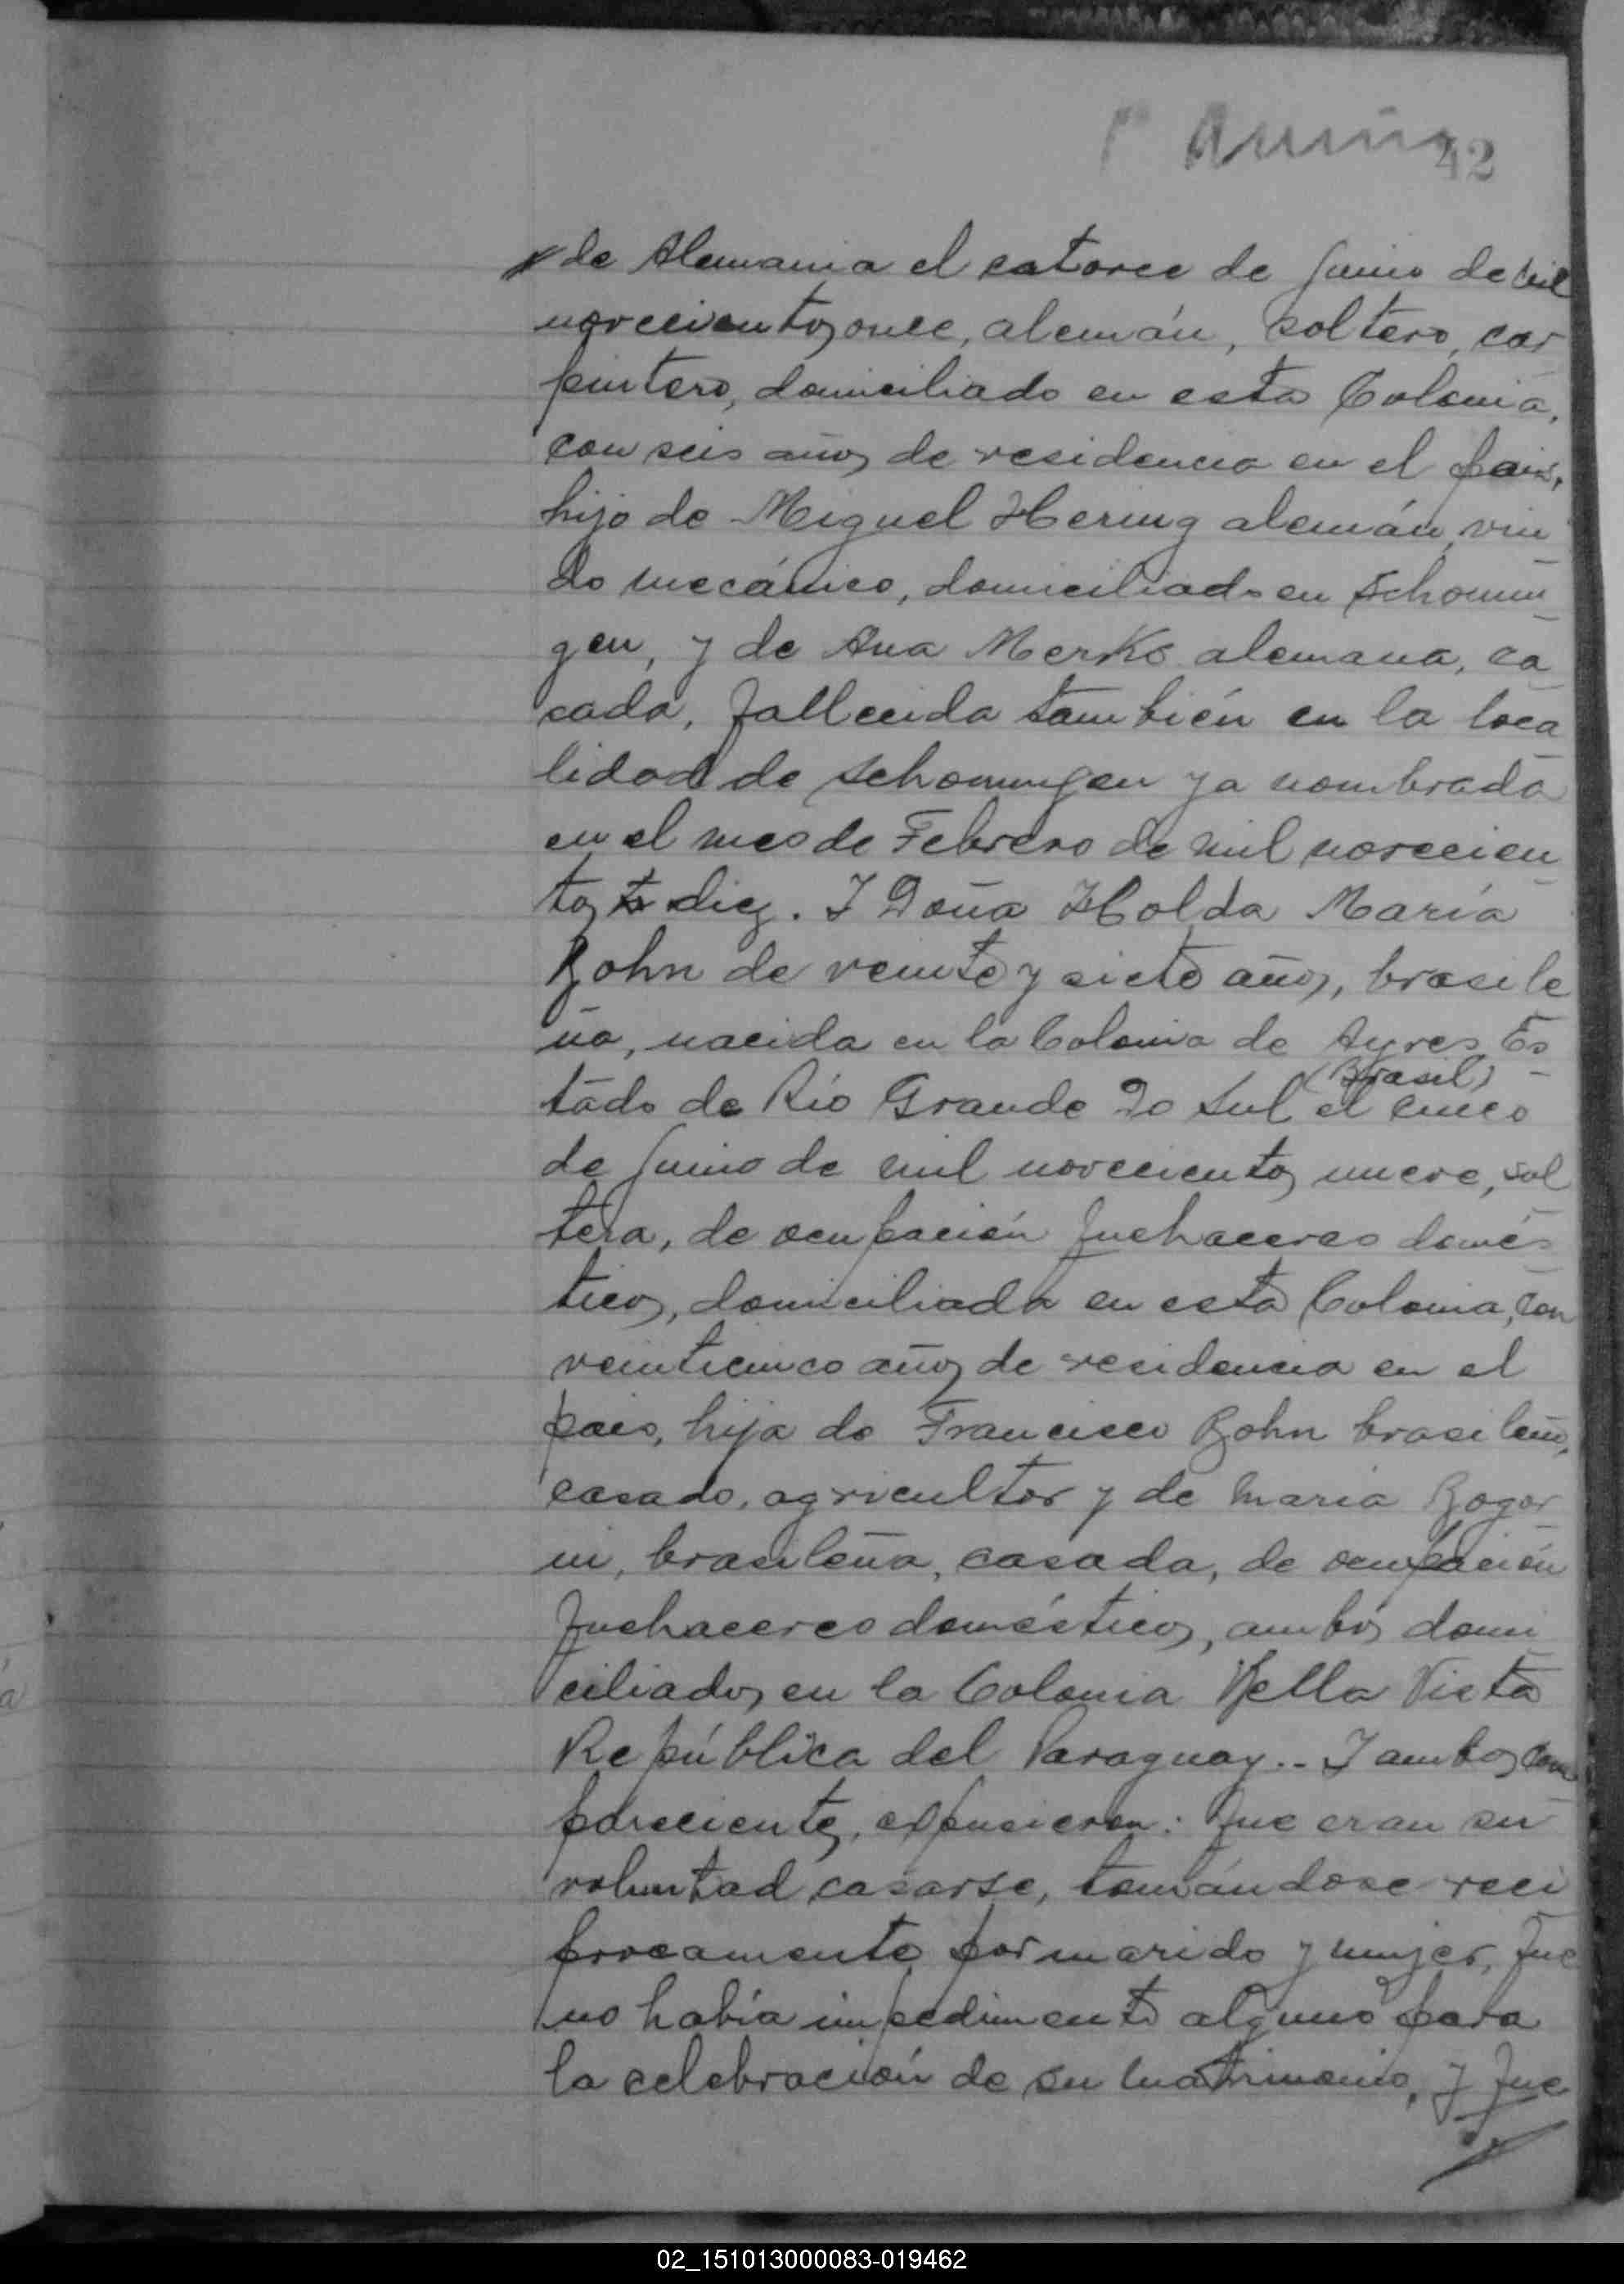 42
de Alemania el catorce de Junio de mil
novecientos once, alemán, soltero, car
pintero, domiciliado en esta Colonia,
con seis años de residencia en el pais,
hijo de Miguel Hering alemán, viu
do mecánico, domiciliado en Schonnin
gen, y de Ana Merks alemana, ca
sada, fallecida también en la loca
lidad de Schonningen ya nombrada
en el mes de Febrero de mil novecien
tos diez. Y Doña Holda María
Bohn de veinte y siete años, brasile
ña, nacida en la Colonia de Ayres Es
(Brasil)
tado de Río Grande Do Sul el cinco
de Junio de mil novecientos nueve, sol
tera, de ocupación quehaceres domés
ticos, domiciliada en esta Colonia, con
veinticinco años de residencia en el
pais, hija de Francisco Bohn brasileño,
casado, agricultor y de María Bogor
ni, brasileña, casada, de ocupación
quehaceres domésticos, ambos domi
ciliados en la Colonia Bella Vista
República del Paraguay.. Y ambos com
parecientes, expusieron: Que eran su
voluntad casarse, tomándose reci
procamente por marido y mujer, que
no había impedimento alguno para
la celebración de su matrimonio, y que
02_151013000083-019462